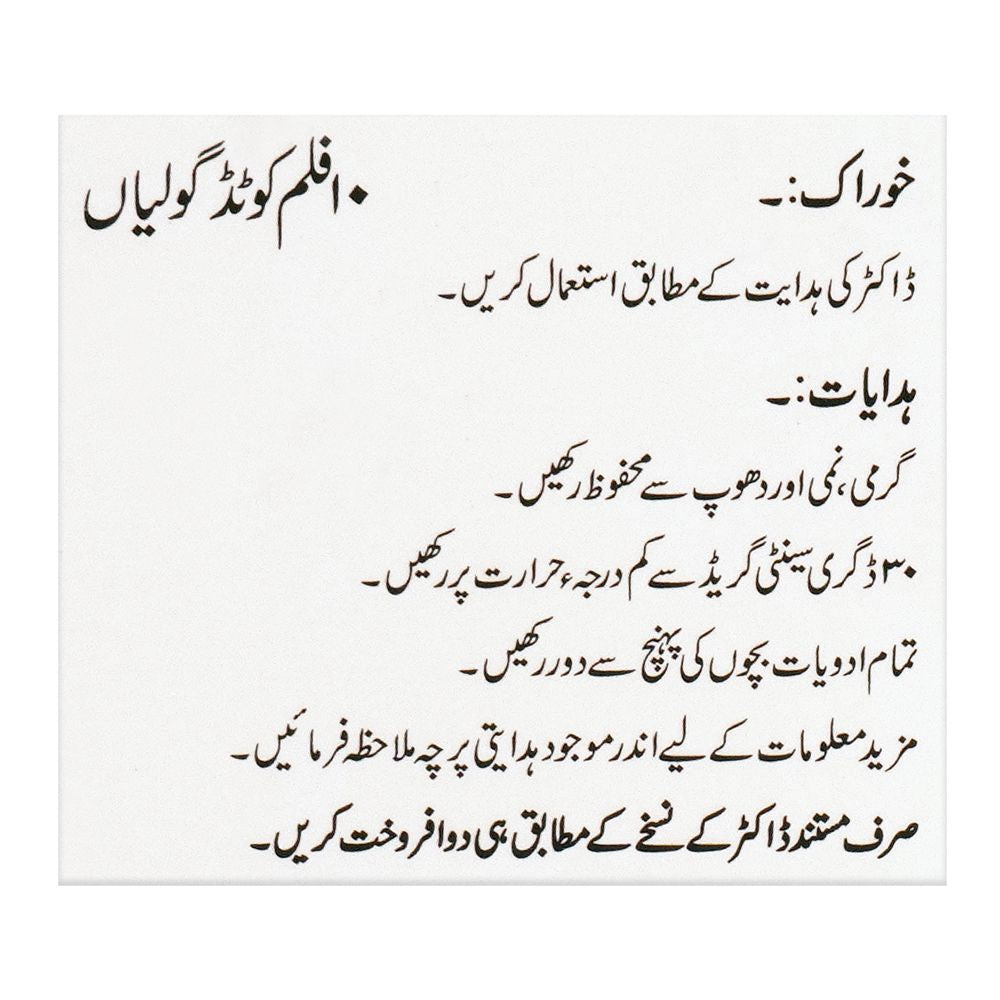 خوراک:۔
۱۰ فلم کوٹڈ گولیاں
ڈاکٹر کی ہدایت کے مطابق استعمال کریں۔
ہدایات:۔
گرمی، نمی اور دھوپ سے محفوظ رکھیں۔
۳۰ ڈگری سینٹی گریڈ سے کم درجہء حرارت پر رکھیں۔
تمام ادویات بچوں کی پہنچ سے دور رکھیں۔
مزید معلومات کے لیے اندر موجود ہدایتی پرچہ ملاحظہ فرمائیں۔
صرف مستند ڈاکٹر کے نسخے کے مطابق ہی دوا فروخت کریں۔